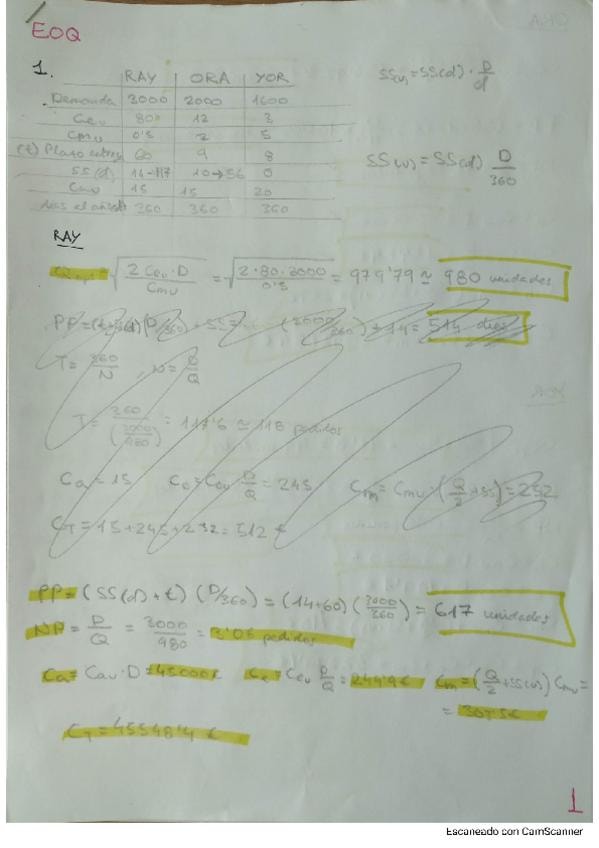 EOQ
1.
RAY ORA YOR
Demanda 3000 2000 1600
Cev 80 12 3
Cmv 0's 2 5
(t) Plazo entreg 60 9 8
SS(d) 14→117 10→56 0
Cav 15 15 20
días el año 360 360 360
SS(v) = SS(d) · D/d
SS(v) = SS(d) D/360
RAY
= √(2 Cev · D / Cmv) = √(2 · 80 · 3000 / 0's) = 979'79 ≃ 980 unidades
PP = (D/360) + SS = (3000/360) + 14 = 514 dias
T = 360/N , N = D/Q
T = 360/(3000/980) = 117'6 ≃ 118 pedidos
Ca = 15 Ce = Cev · D/Q = 245 Cm = Cmv · (Q/2 + SS) = 252
CT = 15 + 245 + 252 = 512 €
PP = (SS(d) + t) (D/360) = (14+60) (3000/360) = 617 unidades
NP = D/Q = 3000/980 = 3'06 pedidos
Ca = Cav · D = 45000€ Ce = Cev D/Q = 244'9€ Cm = (Q/2 + SS(v)) Cmv =
= 303'5€
CT = 45548'4 €
1
Escaneado con CamScanner